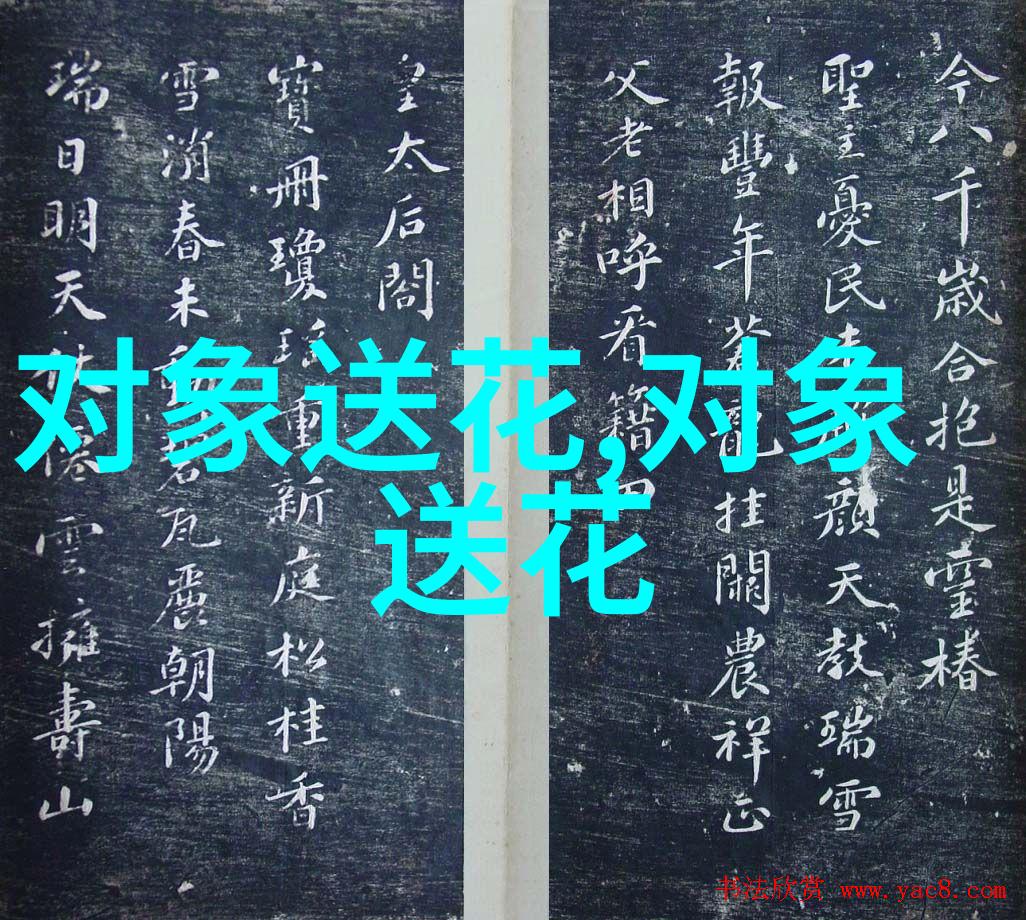 今八千歲合抱是靈椿
聖主憂民未解顏天教瑞雪
報豐年蒼龍挂闕農祥正
父老相呼看籍田
皇太后閣
寶冊瓊瑤重新庭松桂香
雪消春未動碧瓦麗朝陽
瑞日明天仗僊雲擁壽山
对象送花,对象
送花
书法欣赏 www.yac8.com